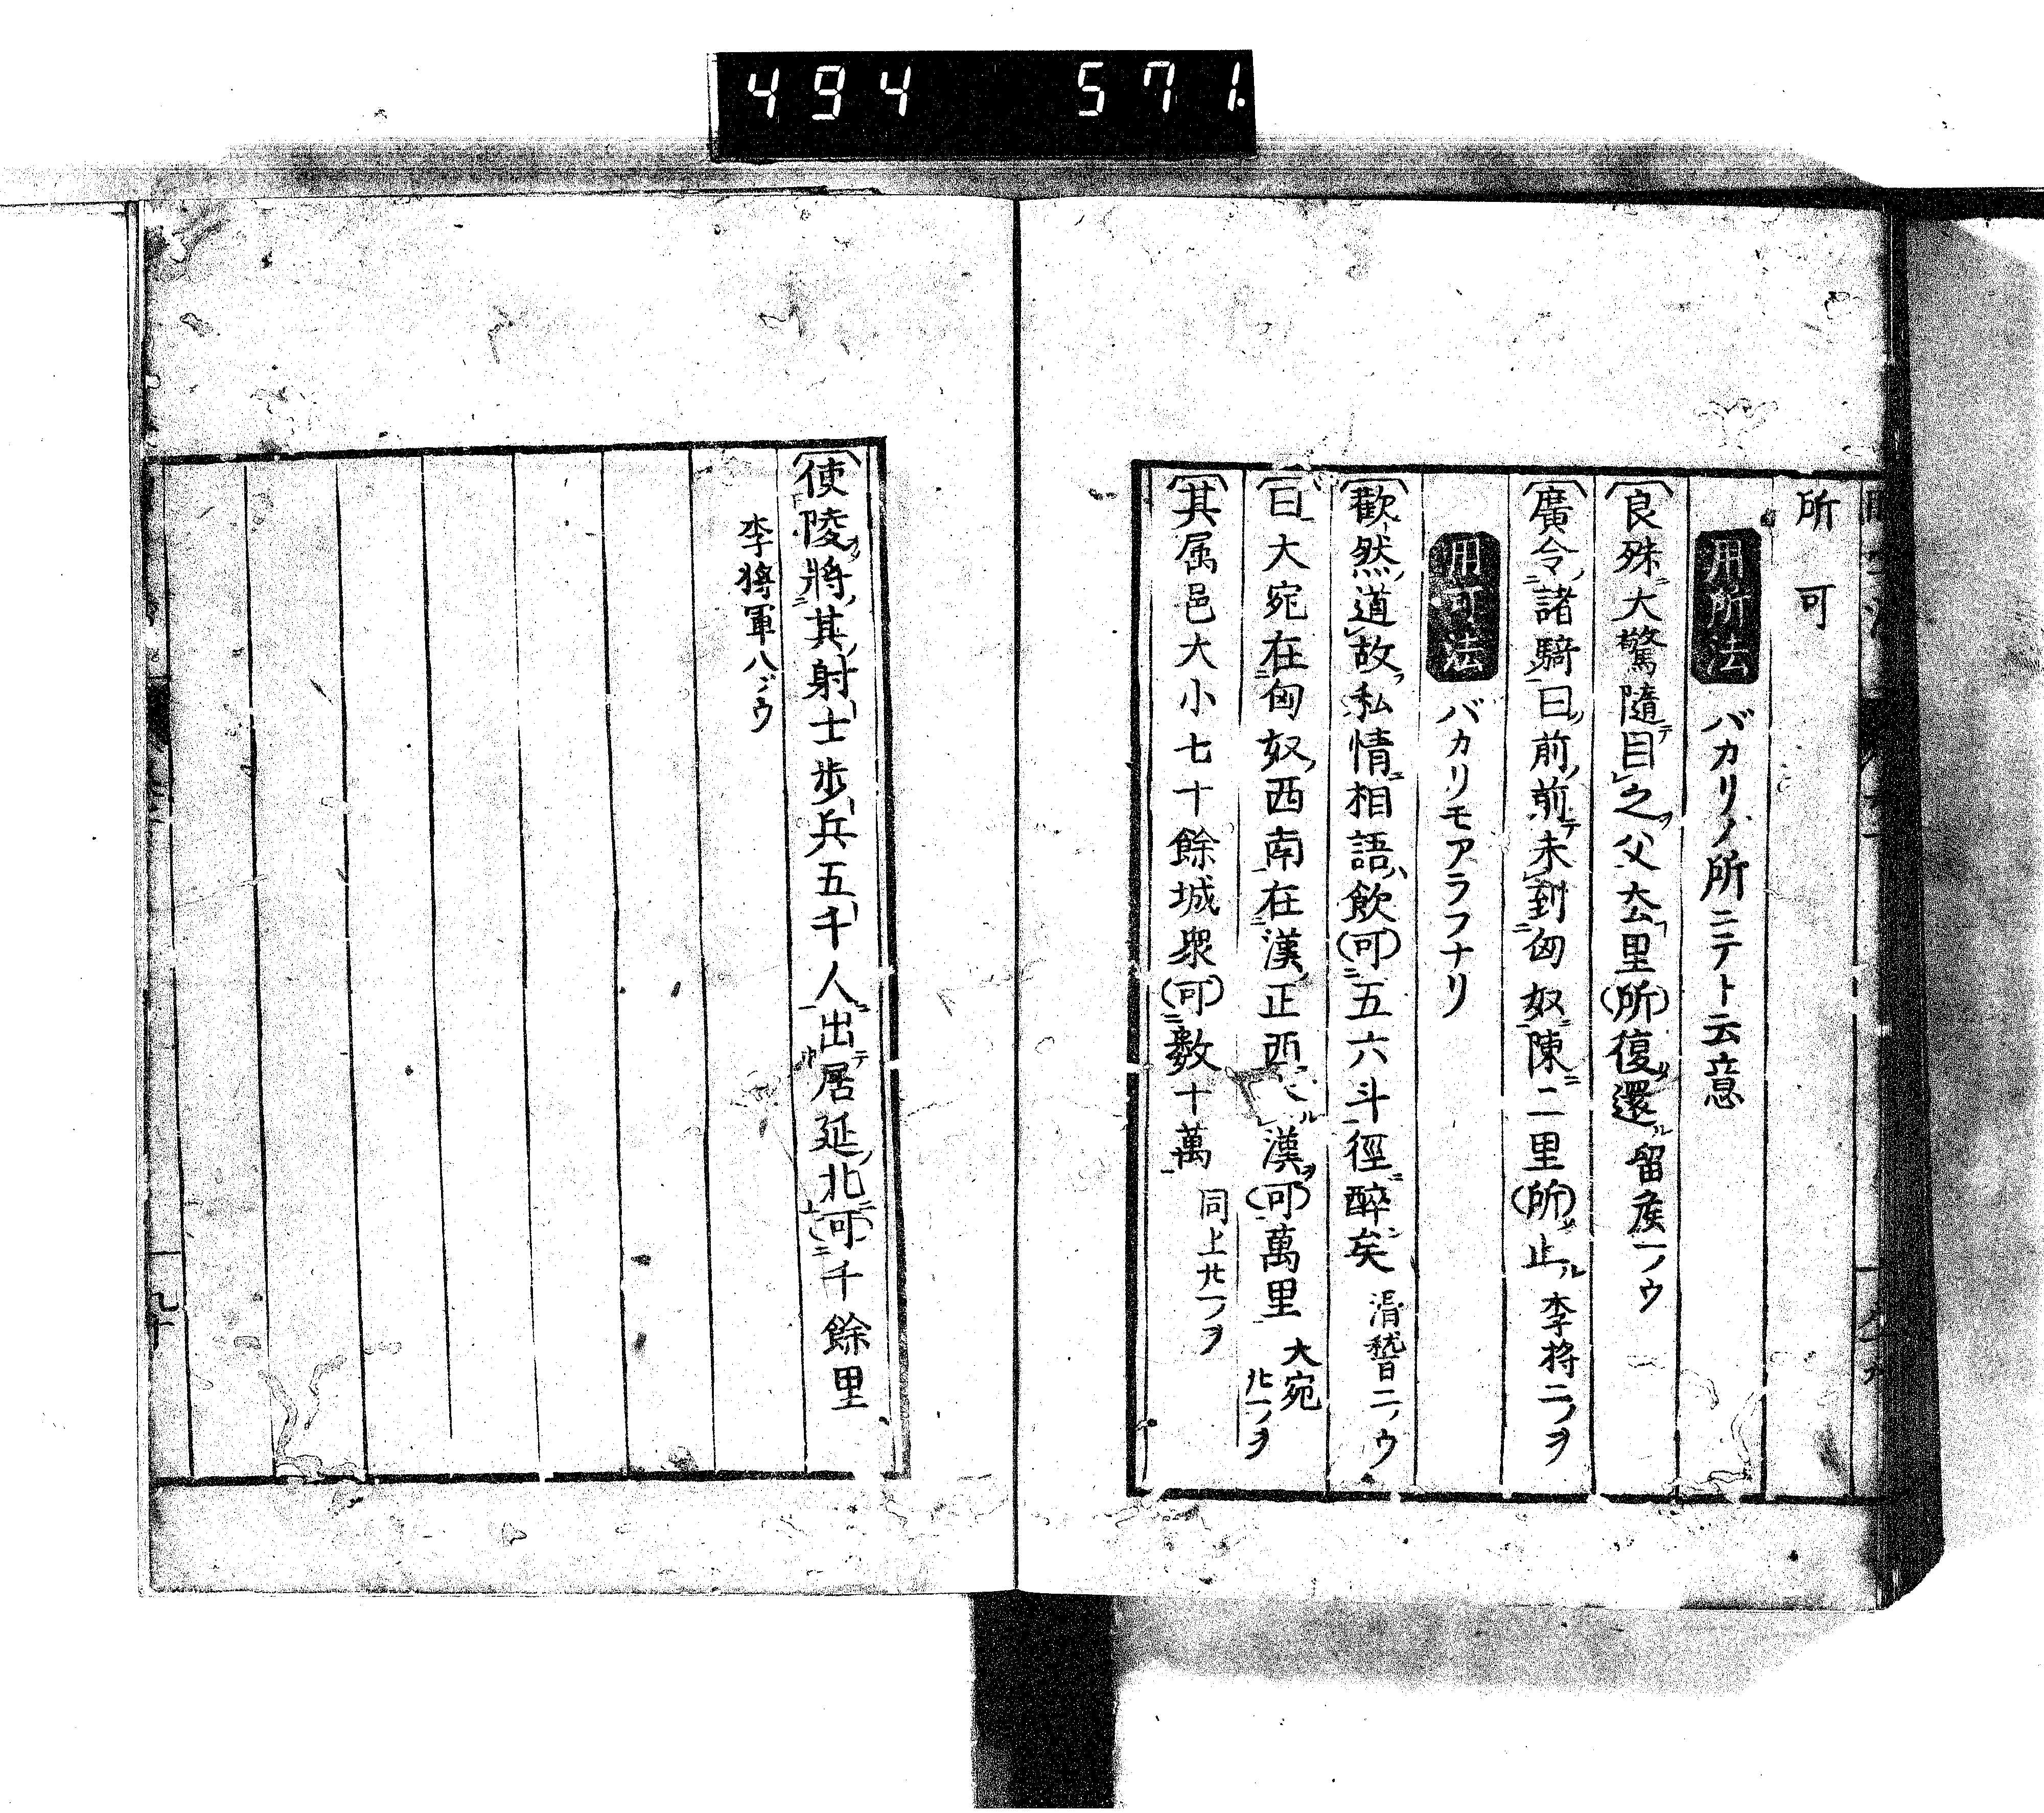 494 571
所可
用所法 バカリノ所ニテト云意
良殊ニ大驚隨テ目之ヲ父去里(所)復還ル 留矦一ノウ
廣令諸騎ニ曰前前テ未到匈奴陳ニ二里(所)止ル 李將二ノヲ
用可法 バカリモアラフナリ
歡然道故ヲ私情相語飲(可)ニ五六斗徑ニ醉矣 滑稽二ノウ
曰大宛在ニ匈奴ノ西南在ニ漢ノ正西 ル漢ヲ(可)萬里 大宛卄一ノヲ
其属邑大小七十餘城衆(可)ニ數十萬 同上卄一ノヲ
使陵將其射士歩兵五千人ニ出テ居延北ニ(可)ニ千餘里
李將軍八ノウ
九十